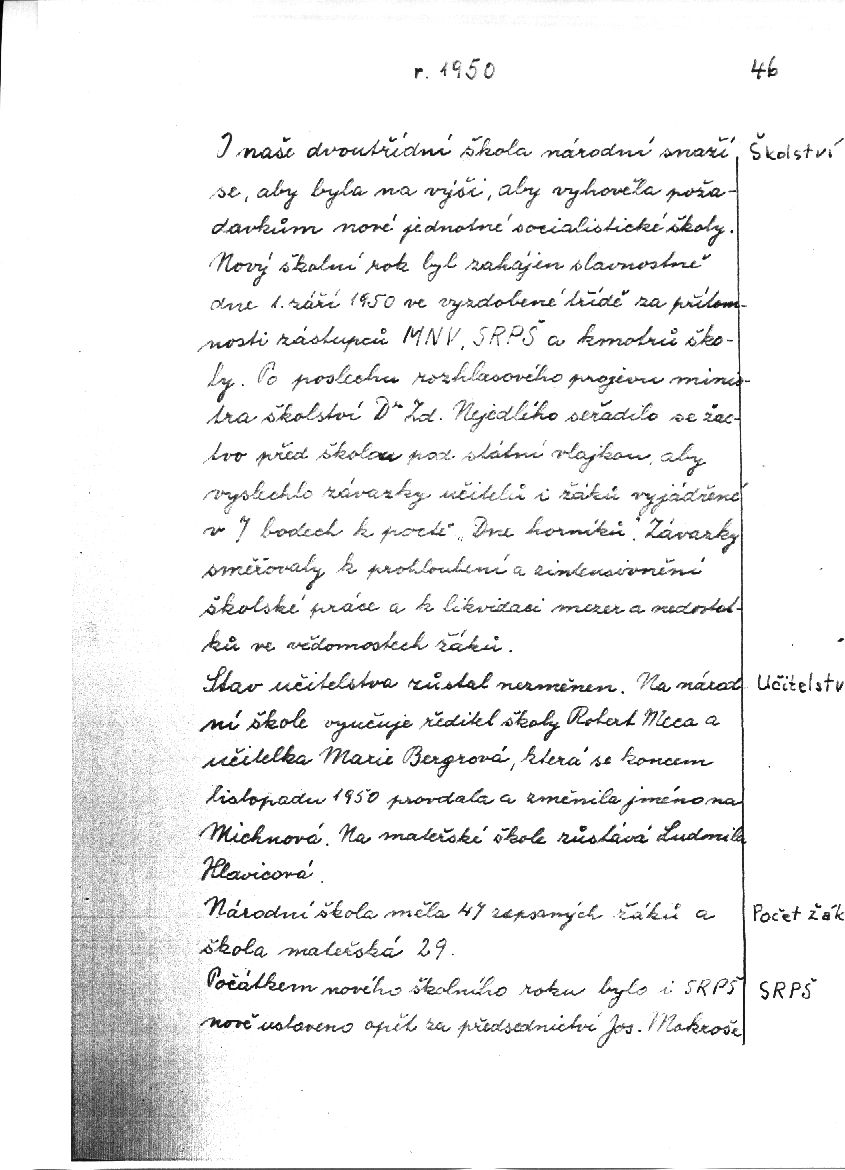 r. 1950 46
I naše dvoutřídní škola národní snaží Školství
se, aby byla na výši, aby vyhověla poža-
davkům nové jednotné socialistické školy.
Nový školní rok byl zahájen slavnostně
dne 1. září 1950 ve vyzdobené třídě za přítom-
nosti zástupců MNV, SRPŠ a kmotrů ško-
ly. Po poslechu rozhlasového projevu minis-
tra školství Dr Zd. Nejedlého seřadilo se žac-
tvo před školou pod státní vlajkou, aby
vyslechlo závazky učitelů i žáků vyjádřené
v 7 bodech k poctě „Dne horníků“. Závazky
směřovaly k prohloubení a zintensivnění
školské práce a k likvidaci mezer a nedostat-
ků ve vědomostech žáků.
Stav učitelstva zůstal nezměnen. Na národ Učitelstv
ní škole vyučuje ředitel školy Robert Meca a
učitelka Marie Bergrová, která se koncem
listopadu 1950 provdala a změnila jméno na
Michnová. Na mateřské škole zůstává Ludmila
Hlavicová.
Národní škola měla 47 zapsaných žáků a Počet žák
škola mateřská 29.
Počátkem nového školního roku bylo i SRPŠ SRPŠ
nově ustaveno opět za předsednictví Jos. Mokroše